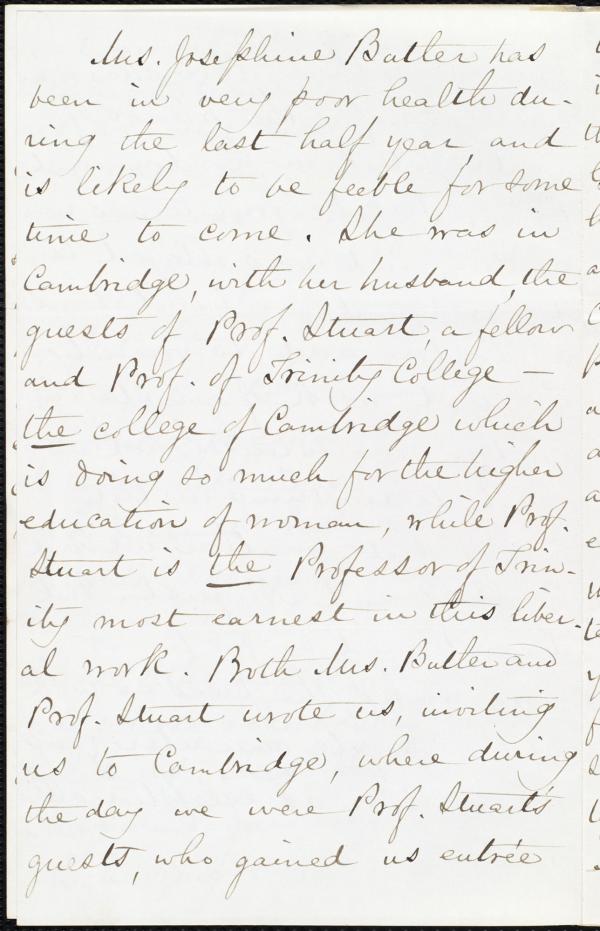 Mrs. Josephine Butler has
been in very poor health du-
ring the last half year, and
is likely to be feeble for some
time to come. She was in
Cambridge, with her husband, the
guests of Prof. Stuart, a fellow
and Prof. of Trinity College —
the college of Cambridge which
is doing so much for the higher
education of woman, while Prof.
Stuart is the Professor of Trin-
ity most earnest in this liber-
al work. Both Mrs. Butler and
Prof. Stuart wrote us, inviting
us to Cambridge, where during
the day we were Prof. Stuart's
guests, who gained us entrée